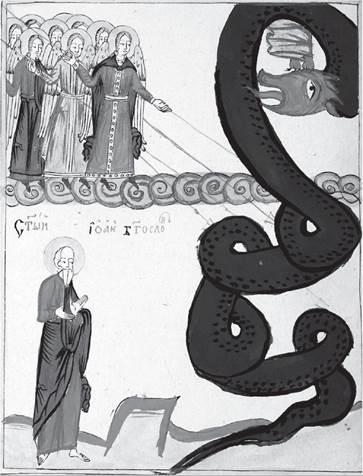 Ст҃ыи Іѡан Бг҃осло